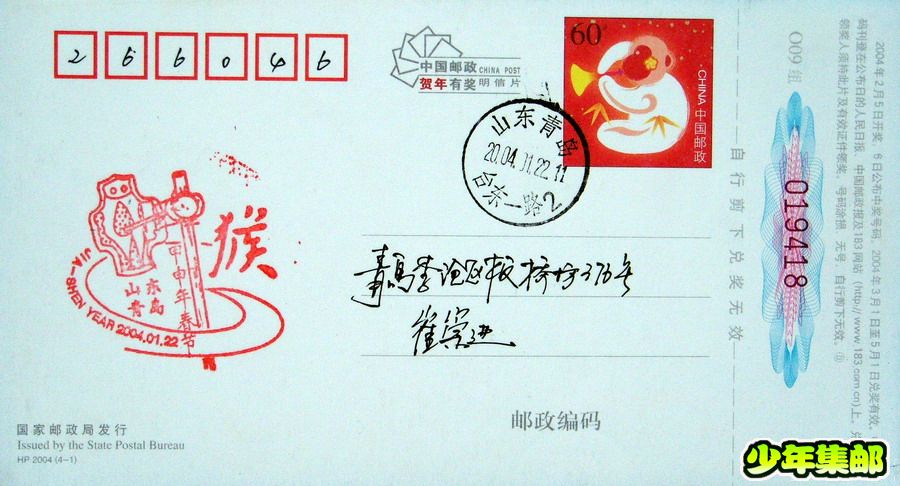 266046
中国邮政 CHINA POST
贺年有奖明信片
60分
CHINA 中国邮政
山东青岛
2004.01.22.11
台东一路2
猴
甲申年春节
山东
青岛
JIA-SHEN YEAR 2004.01.22
青岛
37号
崔
邮政编码
国家邮政局发行
Issued by the State Postal Bureau
HP 2004 (4-1)
自行剪下兑奖无效
009组
019418
2004年2月5日开奖，6日公布中奖号码，2004年3月1日至5月1日兑奖有效。
码刊登在公布日的人民日报、中国邮政报及183网站 (http://www.183.com.cn)上，
领奖人须持此片及有效证件领奖，号码涂损 无号，自行剪下无效。
少年集邮